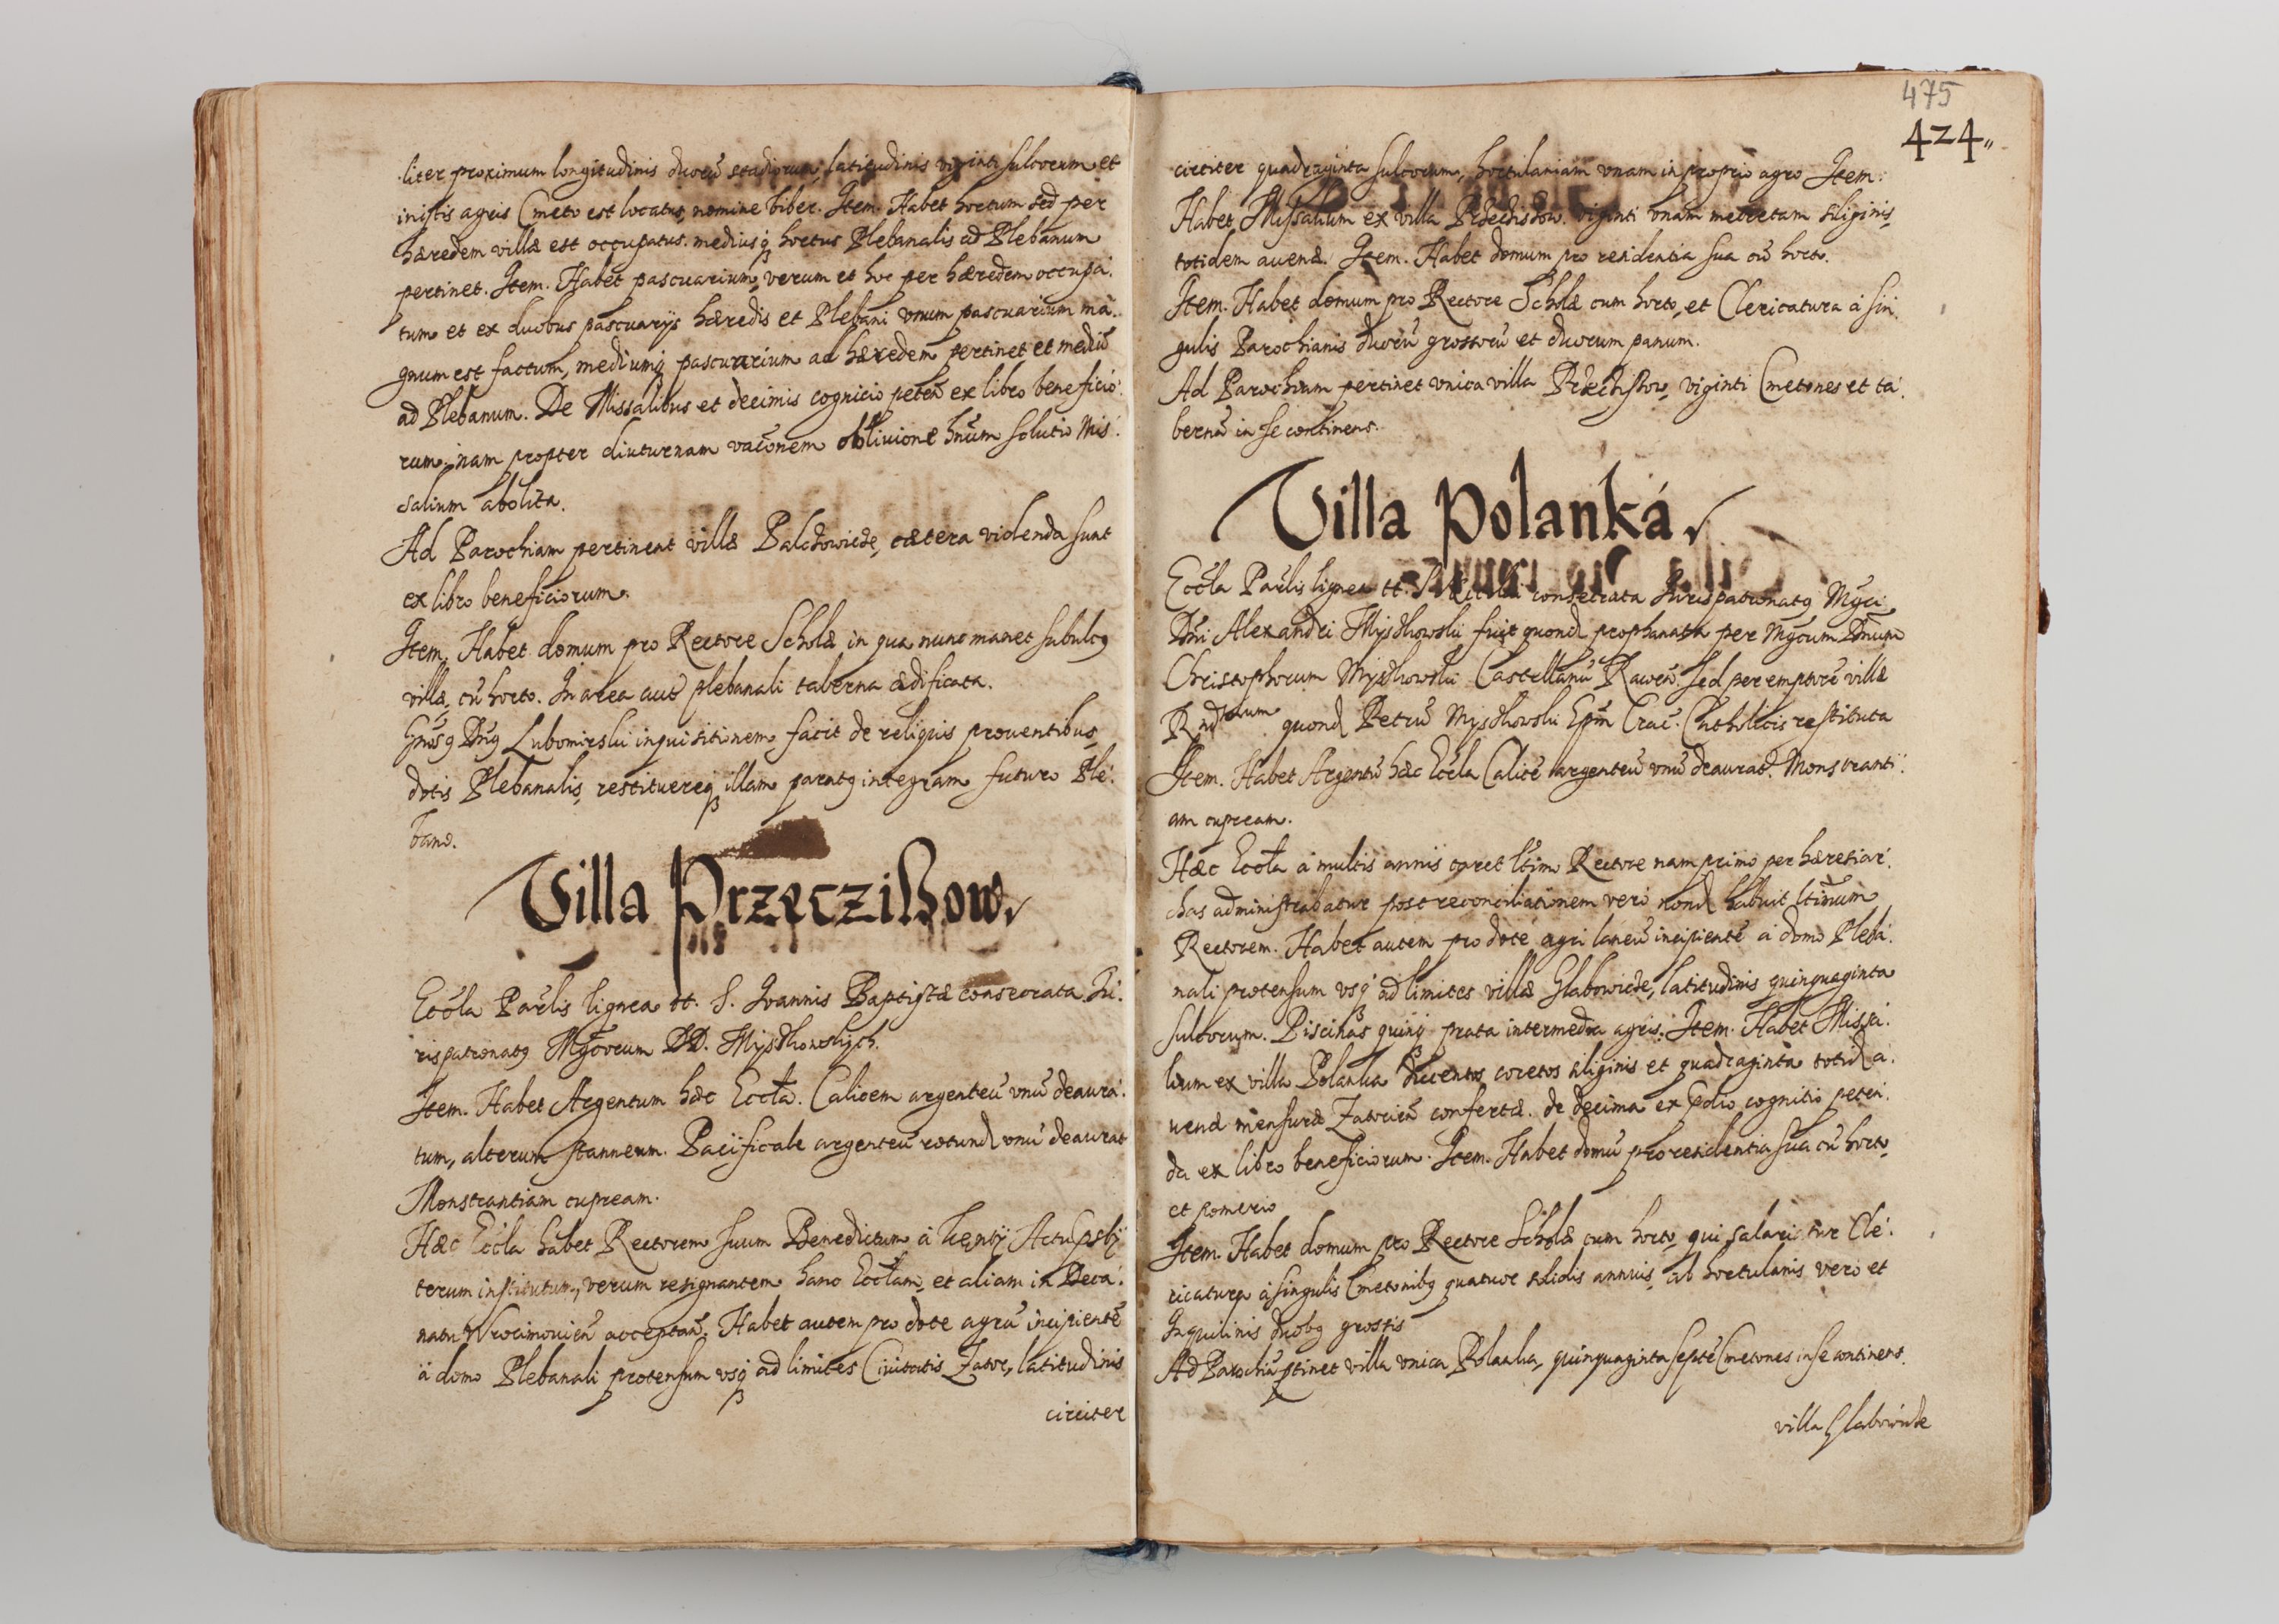 liter proximum longitudinis duorũ stadiorum, latitudinis viginti sulcorum et
inistis agris Cmeto est locatus, nomine biber. Item. Habet hortum sed per
hæredem villæ est occupatus. mediusq hortus Plebanalis ad Plebanum
pertinet. Item. Habet pascuarium, verum et hoc per hæredem occupa:
tum et ex duobus pascuarijs hæredis et Plebani vnum pascuarium ma:
gnum est factum, mediumq pascuarium ad hæredem pertinet et mediũ
ad Plebanum. De Missalibus et decimis cognicio peteñ ex libro beneficio:
rum. nam propter diuturnam vacõnem obliuione hñum solutio Mis:
salium abolita.
Ad Parochiam pertinent villæ Palczowicze, cætera videnda sunt
ex libro beneficiorum.
Item. Habet domum pro Rectore Scholæ in qua nunc manet subulcq
villæ, cũ horto. In area aut plebanali taberna ædificata.
Gñosq Dñq Lubomirski inquisitionem facit de reliquis prouentibus
dotis Plebanalis, restituereq illam paratq integram futuro Ple:
bano.
Villa Przeczishow
Eccla Paečlis lignea tt. S. Ioannis Baptistæ consecrata Iu:
rispatronatq Mgcorum DD. Myszkowskych.
Item. Habet Argentum hæc Eccla. Calicem argenteũ vnũ deaura:
tum, alterum stanneum. Pacificale argenteũ rotund vnũ deaurat
Monstrantiam cupream.
Hæc Eccla habet Rectorem suum Benedictum à Kenty Actu psbÿ
terum institutum, verum resignantem hanc Ecclam, et aliam in Deca:
natu Wrocimouień acceptañ. Habet autem pro dote agrũ incipientẽ
à domo Plebanali protensum vsq ad limites Ciuitatis Zator, latitudinis
circiter
475
424
circiter quadraginta sulcorum, hortulaniam vnam in proprio agro Item:
Habet Missalium ex villa Przechishow. viginti vnam metretam siliginis,
totidem auenæ. Item. Habet domum pro residentia sua cũ hort.
Item. Habet domum pro Rectore Scholæ cum horto, et Clericatura à sin:
gulis Parochianis duorũ grossorũ et duorum panum.
Ad Parochiam pertinet vnica villa Przechishow, viginti Cmetones et ta:
bernã in se continens.
Villa Polanká
Eccla Paečlis lignea tt. S. consecrata Iurispatronatq Mgci
Dñi Alexandri Myszkowski fuit quond prophanata per Mgcum Dñum
Christophorum Myszkowski Castellanũ Raweñ. sed per emptorẽ villæ
Rndum quond Petrũ Myszkowski Epm Crac. Catholicis restituta
Item. Habet Argentũ hæc Eccla Calicẽ argenteũ vnũ deaurat. Monstranti:
am cupream.
Hæc Eccla à multis annis caret ltimo Rectore nam primo per hæresiar:
chas administrabatur post reconciliationem vero nond habuit ltimum
Rectorem. Habet autem pro dote agri laneũ incipientẽ à domo Pleba:
nali protensum vsq ad limites villæ Glabowicze, latitudinis quinquaginta
sulcorum. Piscinas quinq prata intermedia agris. Item. Habet Missa:
lium ex villa Polanka ducentos coretos siliginis et quadraginta totid a:
uenæ mensuræ Zatorień confertæ. de decima ex prædio cognitio peten:
da ex libro beneficiorum. Item. Habet domũ pro residentia sua cũ horto,
et pomerio
Item. Habet domum pro Rectore Scholæ cum horto, qui salaritur Cle:
ricatura à singulis Cmetonibq quatuor solidis annuis, ab hortulanis vero et
Inquilinis duobq grossis
Ad Parochiã ptinet villa vnica Polanka, quinquaginta septẽ Cmetones in se continens.
villa Glabowicze